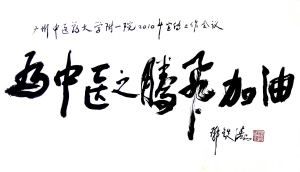 广州中医药大学附一院2010年宣传工作会议
为中医之腾飞加油
邓铁涛